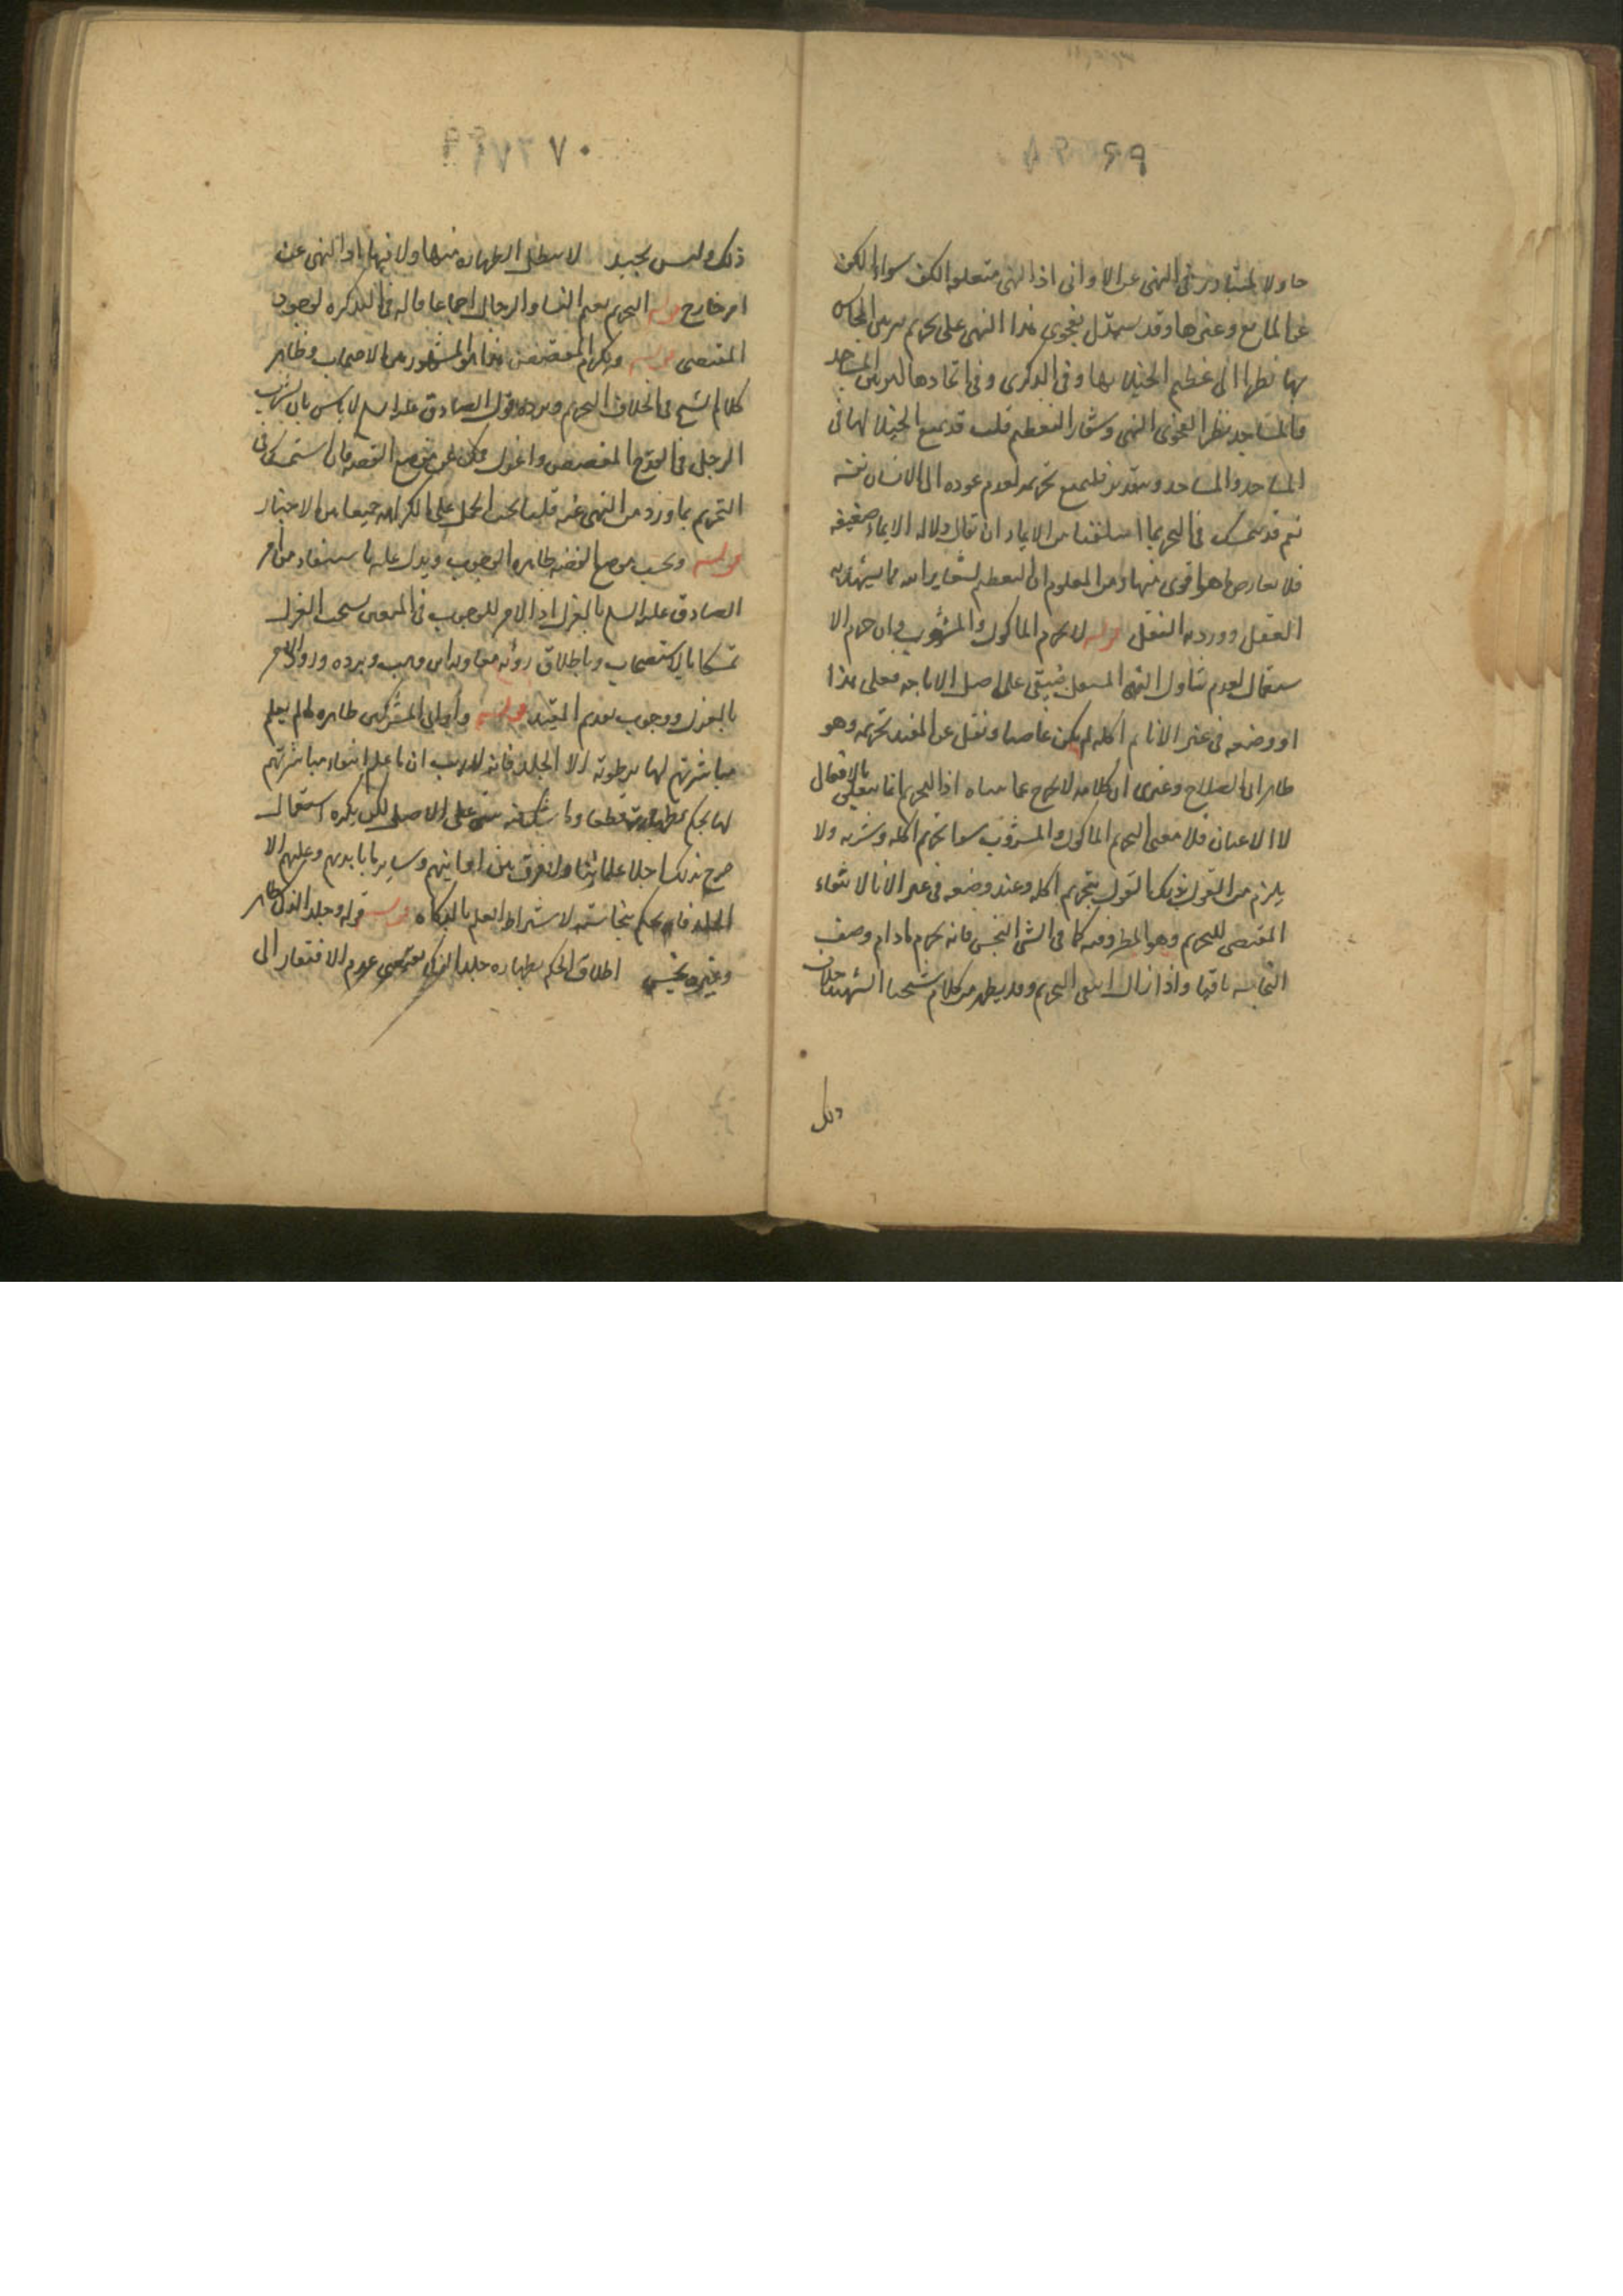 ٦٩
حاولا لمتبادر فى النهى عن الاوانى اذ النهى متعلقه الكف سواء الكف
عن المايع وغيرها وقد يستدل بفحوى هذا النهى على تحريم تزيين المجالس
بها نظرا الى عظيم الخيلاء بها وفى الذكرى وفى اتخاذها لتزيين المساجد
والمشاهد نظرا لفحوى النهى وشعار التعظيم قلت قد يمنع الخيلا لها فى
المساجد والمشاهد وبتقديره فليمنع تحريمه لعدم عوده الى الانسان نفسه
نعم قد يتمسك فى التحريم بما اسلفنا من الايماء الا ان يقال دلاله الايماء ضعيفه
فلا يعارض ما هو اقوى منها ومن المعلوم ان التعظيم لشعاير الله مما يشهد به
العقل وورد به النقل قوله لا يحرم الماكول والمشروب وان حرم الا
ستعمال لعدم تناول النهى المستعمل فيبقى على اصل الاباحه فعلى هذا
او وضعه فى غير الانا ثم اكله لم يكن عاصيا ونقل عن المفيد تحريمه وهو
ظاهر ابى الصلاح وعندى ان كلامه لا يخرج عما سياه اذ التحريم انما يتعلق بالافعال
لا الاعيان فلا معنى لتحريم الماكول والمشروب سوا تحريم اكله وشربه ولا
يلزم من القول بذلك القول بتحريم اكله وعند وضعه فى غير الانا لانتفاء
المقتضى للتحريم وهو المظروفيه كما فى الشى النجس فانه يحرم مادام وصف
النجاسه باقيا واذا زال انتفى التحريم وقد يظهر من كلام شيخنا الشهيد خلاف
ذلك
٧٠
ذلك وليس بجيد لا يبطل الطهاره منها ولا فيها اذ النهى عن
امر خارج قوله التحريم يعم النسا والرجال اجماعا قاله فى التذكره لوجود
المقتضى قوله ويكره المفضض هذا هو المشهور بين الاصحاب وظاهر
كلام الشيخ فى الخلاف التحريم ويرده قول الصادق عليه السلم لا باس بان يشرب
الرجل فى القدح المفضض واعزل فمك عن موضع الفضه فان استمسك فى
التحريم بما ورد من النهى عنه قلنا يجب الحمل على الكراهه جمعا بين الاخبار
قوله ويجب موضع الفضه ظاهره الوجوب ويدل عليه ما يستفاد من امر
الصادق عليه السلم بالعزل اذ الامر للوجوب فى المعتبر يستحب العزل
تمسكا بالاستصحاب وباطلاق روايه معاويه بن وهب ويرده ورود الامر
بالعزل ووجوب تقديم المقيد قوله واوانى المشركين طاهره ما لم يعلم
مباشرتهم لها برطوبه الا الجلد فانه لا ريب ان ما علم انتفاء مباشرتهم
لها يحكم بطهارته قطعا وما شك فيه بنى على الاصل لكن يكره استعماله
صرح بذلك اجلا علمائنا ولا فرق بين اوانيهم وساير ما بايديهم وعليهم الا
الجلد فانه يحكم بنجاسته لاشتراط العلم بالذكاه قوله وجلد الذكى طاهر
وغيره نجس اطلاق الحكم بطهاره جلد الذكى يقتضى عدم الافتقار الى